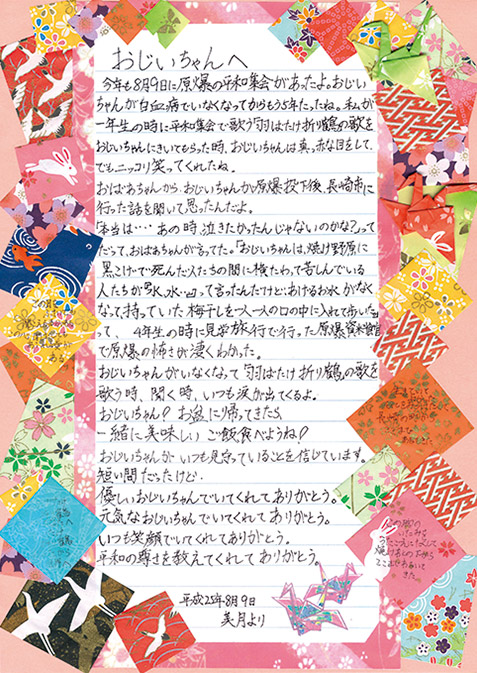 おじいちゃんへ
今年も8月9日に原爆の平和集会があったよ。おじい
ちゃんが白血病でいなくなってからもう5年たったね。私が
一年生の時に平和集会で歌う「羽ばたけ折り鶴」の歌を
おじいちゃんにきいてもらった時、おじいちゃんは真っ赤な目をして、
でもニッコリ笑ってくれたね。
おばあちゃんから、おじいちゃんが原爆投下後、長崎市に
行った話を聞いて思ったんだよ。
「本当は…あの時、泣きたかったんじゃないのかな?」って
だって、おばあちゃんが言ってた。「おじいちゃんは、焼け野原に
黒こげで死んだ人たちの間に横たわって苦しんでいる
人たちが『水、水…』って言ったんだけど、あげるお水がなく
なって持っていた梅干しを一人一人の口の中に入れて歩いた」
って、4年生の時に見学旅行で行った原爆資料館
で原爆の怖さが凄くわかった。
おじいちゃんがいなくなって「羽ばたけ折り鶴」の歌を
歌う時、聞く時、いつも涙が出てくるよ。
おじいちゃん?お盆に帰ってきたら
一緒に美味しいご飯食べようね?
おじいちゃんがいつも見守っていることを信じています。
短い間だったけど、
優しいおじいちゃんでいてくれてありがとう。
元気なおじいちゃんでいてくれてありがとう。
いつも笑顔でいてくれてありがとう。
平和の尊さを教えてくれてありがとう。
平成25年8月9日
美月より